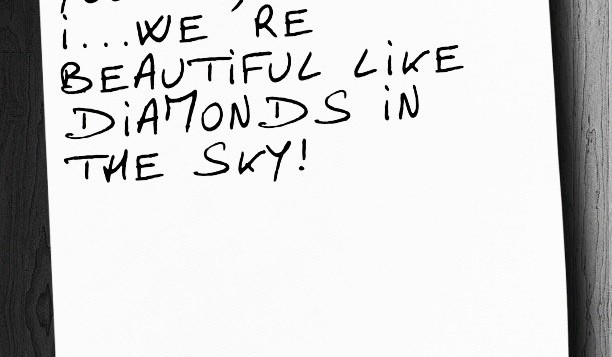 i...WE 'RE
BEAUTiFUL LiKE
DiAMONDS iN
THE SKY!